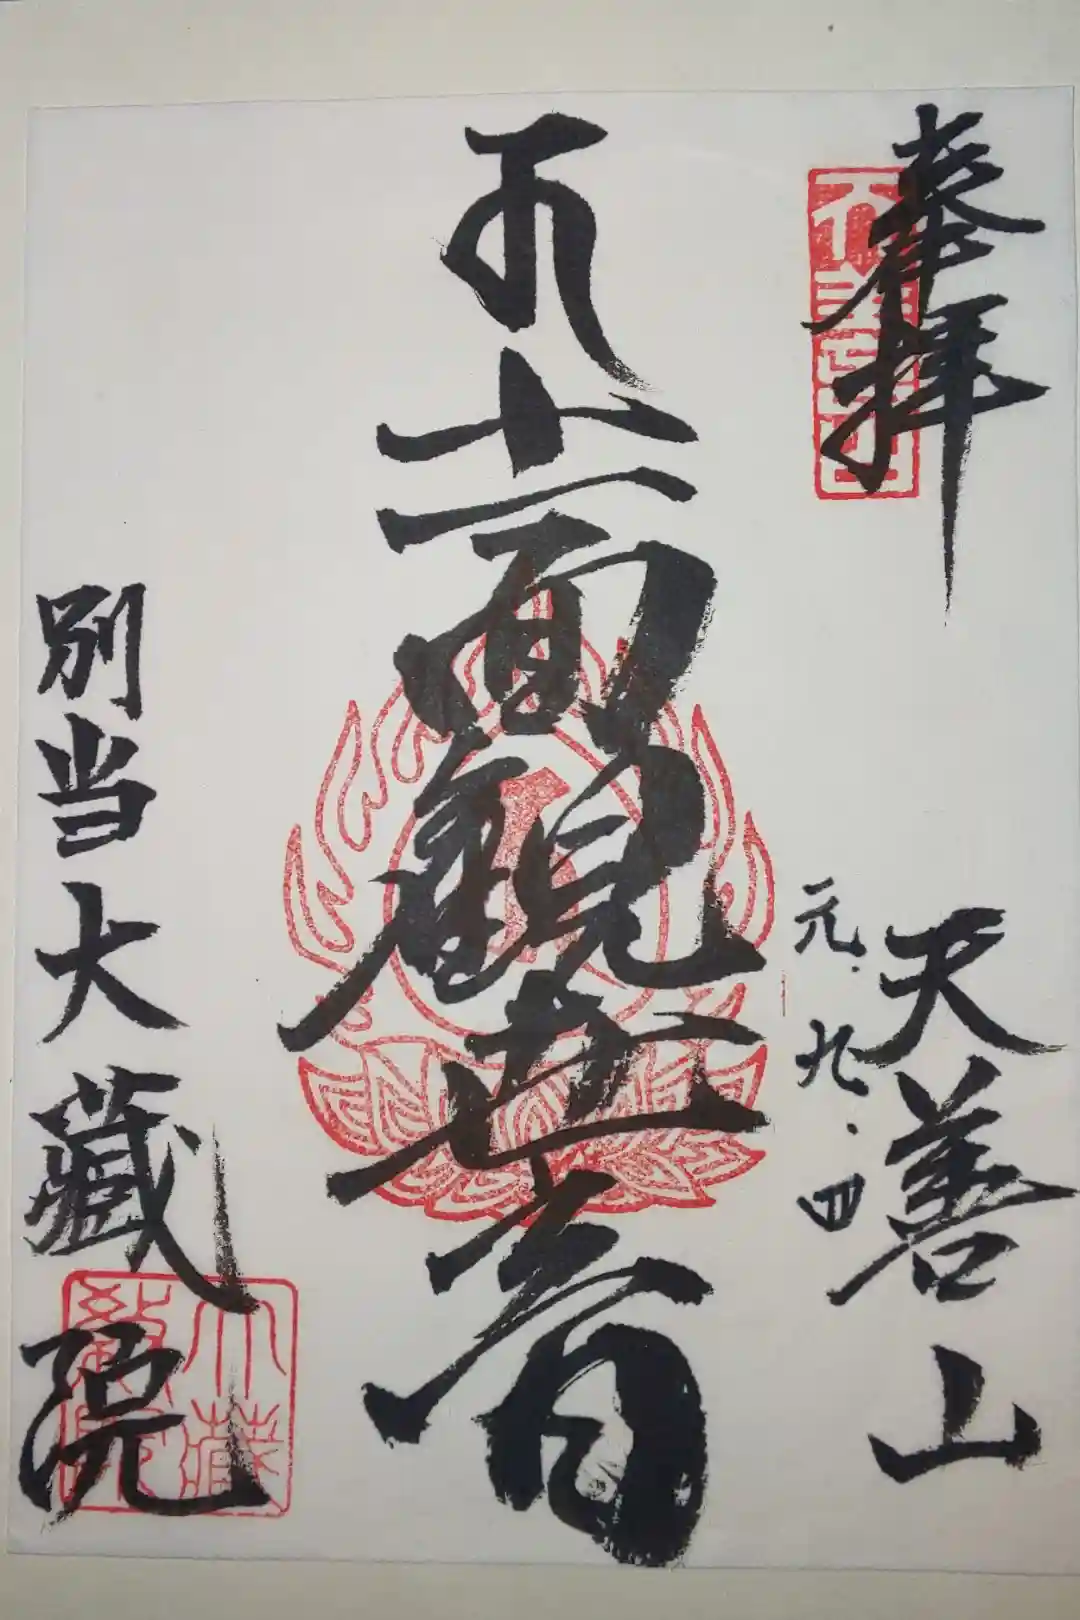 奉拝
天善山
元.九.四
十一面観世音
別当大蔵院